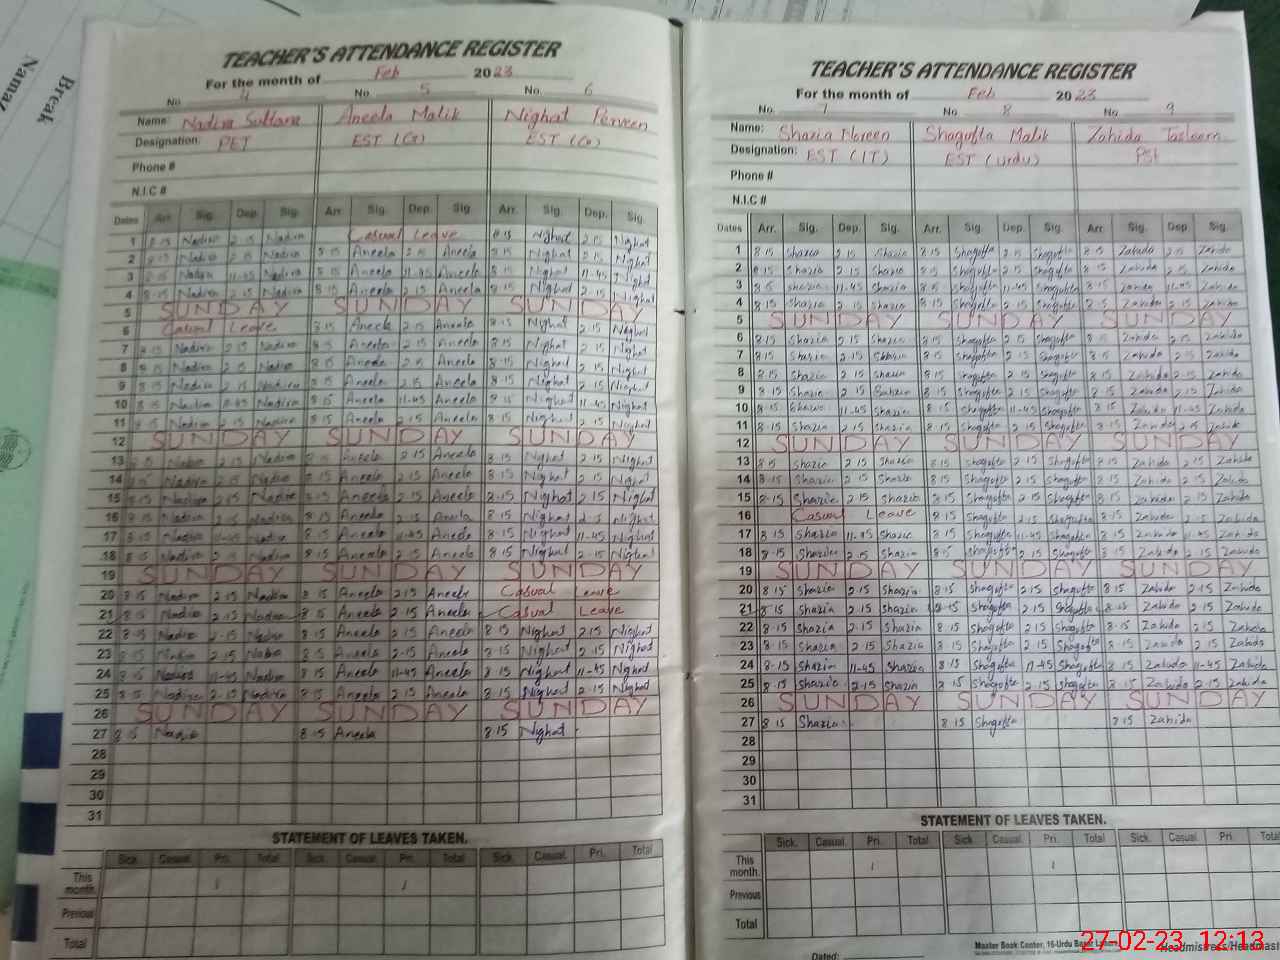 Namaz
Break
TEACHER'S ATTENDANCE REGISTER
For the month of Feb 2023
No. 4 No. 5 No. 6
Name: Nadira Sultana Aneela Malik Nighat Perveen
Designation: PET EST (G) EST (G)
Phone #
N.I.C #
Dates Arr. Sig. Dep. Sig. Arr. Sig. Dep. Sig. Arr. Sig. Dep. Sig.
1 8-15 Nadira 2-15 Nadira Casual Leave 8-15 Nighat 2-15 Nighat
2 8-15 Nadira 2-15 Nadira 8-15 Aneela 2-15 Aneela 8-15 Nighat 2-15 Nighat
3 8-15 Nadira 11-45 Nadira 8-15 Aneela 11-45 Aneela 8-15 Nighat 11-45 Nighat
4 8-15 Nadira 2-15 Nadira 8-15 Aneela 2-15 Aneela 8-15 Nighat 2-15 Nighat
5 SUNDAY SUNDAY SUNDAY
6 Casual Leave 8-15 Aneela 2-15 Aneela 8-15 Nighat 2-15 Nighat
7 8-15 Nadira 2-15 Nadira 8-15 Aneela 2-15 Aneela 8-15 Nighat 2-15 Nighat
8 8-15 Nadira 2-15 Nadira 8-15 Aneela 2-15 Aneela 8-15 Nighat 2-15 Nighat
9 8-15 Nadira 2-15 Nadira 8-15 Aneela 2-15 Aneela 8-15 Nighat 2-15 Nighat
10 8-15 Nadira 11-45 Nadira 8-15 Aneela 11-45 Aneela 8-15 Nighat 11-45 Nighat
11 8-15 Nadira 2-15 Nadira 8-15 Aneela 2-15 Aneela 8-15 Nighat 2-15 Nighat
12 SUNDAY SUNDAY SUNDAY
13 8-15 Nadira 2-15 Nadira 8-15 Aneela 2-15 Aneela 8-15 Nighat 2-15 Nighat
14 8-15 Nadira 2-15 Nadira 8-15 Aneela 2-15 Aneela 8-15 Nighat 2-15 Nighat
15 8-15 Nadira 2-15 Nadira 8-15 Aneela 2-15 Aneela 8-15 Nighat 2-15 Nighat
16 8-15 Nadira 2-15 Nadira 8-15 Aneela 2-15 Aneela 8-15 Nighat 2-15 Nighat
17 8-15 Nadira 11-45 Nadira 8-15 Aneela 11-45 Aneela 8-15 Nighat 11-45 Nighat
18 8-15 Nadira 2-15 Nadira 8-15 Aneela 2-15 Aneela 8-15 Nighat 2-15 Nighat
19 SUNDAY SUNDAY SUNDAY
20 8-15 Nadira 2-15 Nadira 8-15 Aneela 2-15 Aneela Casual Leave
21 8-15 Nadira 2-15 Nadira 8-15 Aneela 2-15 Aneela Casual Leave
22 8-15 Nadira 2-15 Nadira 8-15 Aneela 2-15 Aneela 8-15 Nighat 2-15 Nighat
23 8-15 Nadira 2-15 Nadira 8-15 Aneela 2-15 Aneela 8-15 Nighat 2-15 Nighat
24 8-15 Nadira 11-45 Nadira 8-15 Aneela 11-45 Aneela 8-15 Nighat 11-45 Nighat
25 8-15 Nadira 2-15 Nadira 8-15 Aneela 2-15 Aneela 8-15 Nighat 2-15 Nighat
26 SUNDAY SUNDAY SUNDAY
27 8-15 Nadira 8-15 Aneela 8-15 Nighat
28
29
30
31
STATEMENT OF LEAVES TAKEN.
Sick. Casual. Pri. Total Sick. Casual. Pri. Total Sick. Casual. Pri. Total
This month. 1 1
Previous
Total
TEACHER'S ATTENDANCE REGISTER
For the month of Feb 2023
No. 7 No. 8 No. 9
Name: Shazia Noreen Shagufta Malik Zahida Tasleem
Designation: EST (IT) EST (Urdu) PST
Phone #
N.I.C #
Dates Arr. Sig. Dep. Sig. Arr. Sig. Dep. Sig. Arr. Sig. Dep. Sig.
1 8-15 Shazia 2-15 Shazia 8-15 Shagufta 2-15 Shagufta 8-15 Zahida 2-15 Zahida
2 8-15 Shazia 2-15 Shazia 8-15 Shagufta 2-15 Shagufta 8-15 Zahida 2-15 Zahida
3 8-15 Shazia 11-45 Shazia 8-15 Shagufta 11-45 Shagufta 8-15 Zahida 11-45 Zahida
4 8-15 Shazia 2-15 Shazia 8-15 Shagufta 2-15 Shagufta 8-15 Zahida 2-15 Zahida
5 SUNDAY SUNDAY SUNDAY
6 8-15 Shazia 2-15 Shazia 8-15 Shagufta 2-15 Shagufta 8-15 Zahida 2-15 Zahida
7 8-15 Shazia 2-15 Shazia 8-15 Shagufta 2-15 Shagufta 8-15 Zahida 2-15 Zahida
8 8-15 Shazia 2-15 Shazia 8-15 Shagufta 2-15 Shagufta 8-15 Zahida 2-15 Zahida
9 8-15 Shazia 2-15 Shazia 8-15 Shagufta 2-15 Shagufta 8-15 Zahida 2-15 Zahida
10 8-15 Shazia 11-45 Shazia 8-15 Shagufta 11-45 Shagufta 8-15 Zahida 11-45 Zahida
11 8-15 Shazia 2-15 Shazia 8-15 Shagufta 2-15 Shagufta 8-15 Zahida 2-15 Zahida
12 SUNDAY SUNDAY SUNDAY
13 8-15 Shazia 2-15 Shazia 8-15 Shagufta 2-15 Shagufta 8-15 Zahida 2-15 Zahida
14 8-15 Shazia 2-15 Shazia 8-15 Shagufta 2-15 Shagufta 8-15 Zahida 2-15 Zahida
15 8-15 Shazia 2-15 Shazia 8-15 Shagufta 2-15 Shagufta 8-15 Zahida 2-15 Zahida
16 Casual Leave 8-15 Shagufta 2-15 Shagufta 8-15 Zahida 2-15 Zahida
17 8-15 Shazia 11-45 Shazia 8-15 Shagufta 11-45 Shagufta 8-15 Zahida 11-45 Zahida
18 8-15 Shazia 2-15 Shazia 8-15 Shagufta 2-15 Shagufta 8-15 Zahida 2-15 Zahida
19 SUNDAY SUNDAY SUNDAY
20 8-15 Shazia 2-15 Shazia 8-15 Shagufta 2-15 Shagufta 8-15 Zahida 2-15 Zahida
21 8-15 Shazia 2-15 Shazia 8-15 Shagufta 2-15 Shagufta 8-15 Zahida 2-15 Zahida
22 8-15 Shazia 2-15 Shazia 8-15 Shagufta 2-15 Shagufta 8-15 Zahida 2-15 Zahida
23 8-15 Shazia 2-15 Shazia 8-15 Shagufta 2-15 Shagufta 8-15 Zahida 2-15 Zahida
24 8-15 Shazia 11-45 Shazia 8-15 Shagufta 11-45 Shagufta 8-15 Zahida 11-45 Zahida
25 8-15 Shazia 2-15 Shazia 8-15 Shagufta 2-15 Shagufta 8-15 Zahida 2-15 Zahida
26 SUNDAY SUNDAY SUNDAY
27 8-15 Shazia 8-15 Shagufta 8-15 Zahida
28
29
30
31
STATEMENT OF LEAVES TAKEN.
Sick. Casual. Pri. Total Sick. Casual. Pri. Total Sick. Casual. Pri.
This month. 1 1
Previous
Total
Master Book Center, 16-Urdu Bazar Lahore
Dated: Headmistress/Headmast
27-02-23 12:13